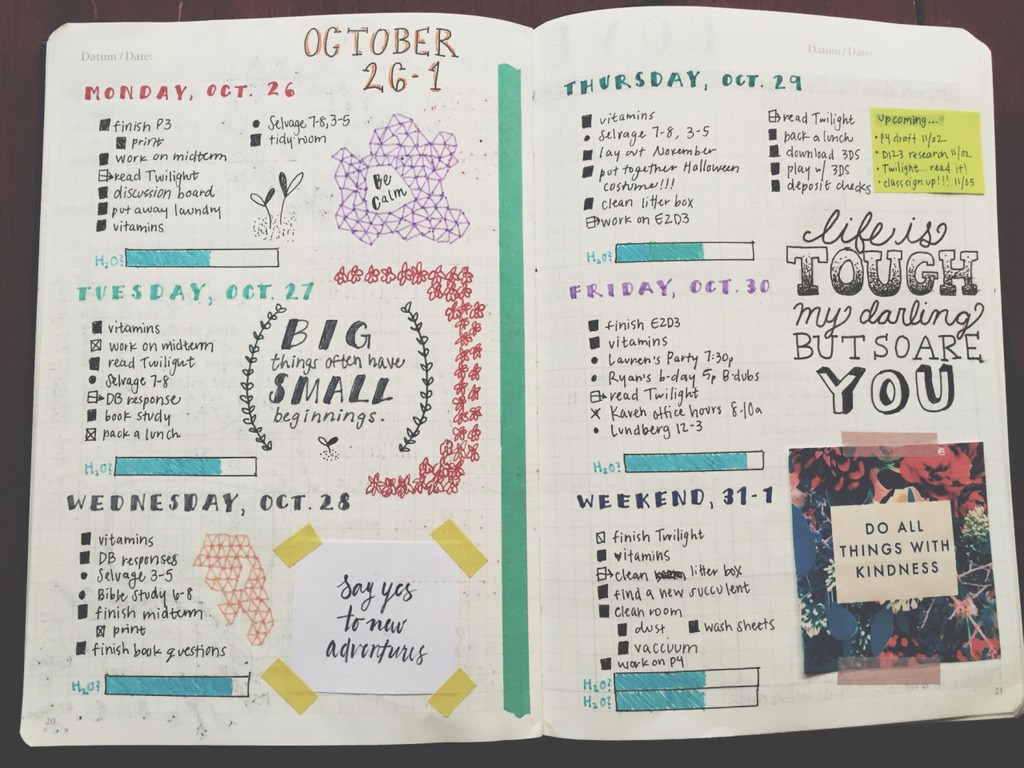 Datum / Date:
OCTOBER
26-1
MONDAY, OCT. 26
finish P3
print
work on midterm
read Twilight
discussion board
put away laundry
vitamins
Selvage 7-8, 3-5
tidy room
Be
Calm
H2O?
TUESDAY, OCT. 27
vitamins
work on midterm
read Twilight
Selvage 7-8
DB response
book study
pack a lunch
BIG
things often have
SMALL
beginnings.
H2O?
WEDNESDAY, OCT. 28
vitamins
DB responses
Selvage 3-5
Bible Study 6-8
finish midterm
print
finish book questions
say yes
to new
adventures
H2O?
20
Datum / Date:
THURSDAY, OCT. 29
vitamins
Selvage 7-8, 3-5
lay out November
put together Halloween
costume!!!
clean litter box
work on E2D3
read Twilight
pack a lunch
download 3DS
play w/ 3DS
deposit checks
upcoming...
• P4 draft 11/02
• D123 research 11/02
• Twilight... read it!
• class sign up!!! 11/05
H2O?
life is
TOUGH
my darling
BUT SO ARE
YOU
FRIDAY, OCT. 30
finish E2D3
vitamins
Lauren's Party 7:30p
Ryan's b-day 5p B-dubs
read Twilight
Kaveh office hours 8-10a
Lundberg 12-3
H2O?
WEEKEND, 31-1
finish Twilight
vitamins
clean litter box
find a new succulent
clean room
dust
wash sheets
vaccuum
work on P4
H2O?
H2O?
DO ALL
THINGS WITH
KINDNESS
21